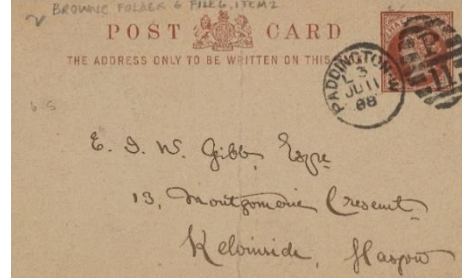 BROWNE FOLDER 6 FILE 6, ITEM 2
POST CARD
THE ADDRESS ONLY TO BE WRITTEN ON THIS
PADDINGTON. W
L 3
JU 11
88
P
11
E. J. W. Gibb Esqre
13, Montgomerie Crescent,
Kelvinside, Glasgow